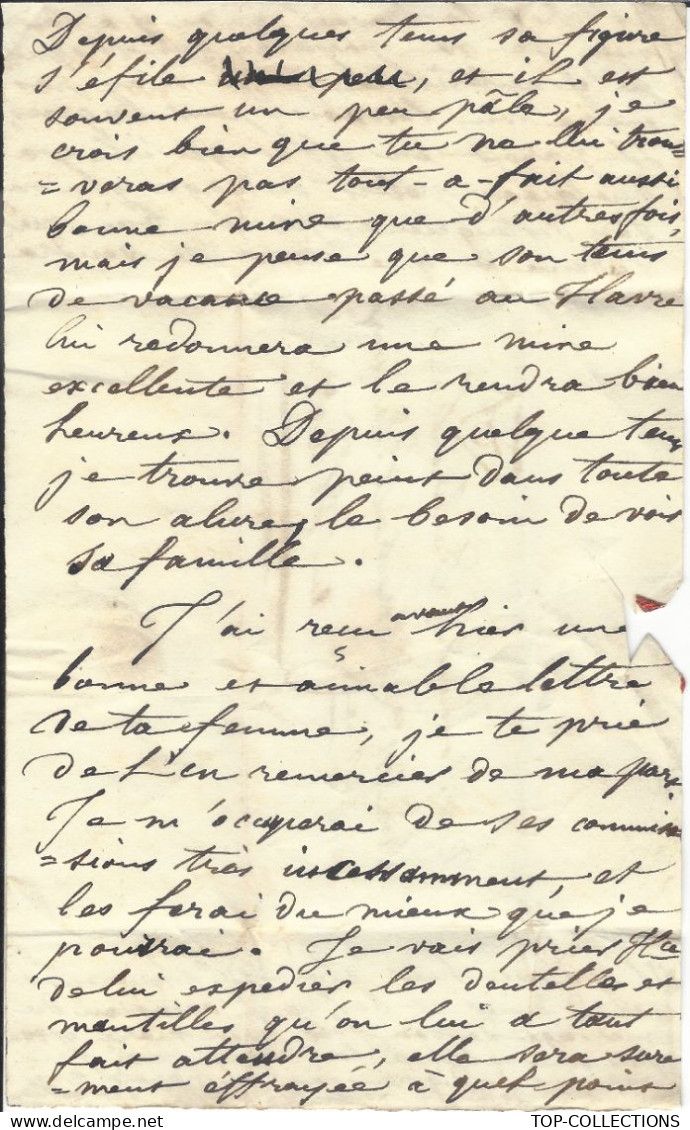 Depuis quelques tems sa figure
s'éfile un peu, et il est
souvent un peu pâle, je
crois bien que tu ne lui trou=
=veras pas tout-a-fait aussi
bonne mine que d'autres fois,
mais je pense que son tems
de vacance passé au Havre
lui redonnera une mine
excellente et le rendra bien
heureux. Depuis quelque tems
je trouve peint dans toute
son alure, le besoin de voir
sa famille.
J'ai reçu avant hier une
bonne et aimable lettre
de ta femme, je te prie
de l'en remercier de ma part
Je m'occuperai de ses commis
=sions très incessamment, et
les ferai du mieux que je
pourrai. Je vais prier
de lui expedier les dentelles et
mantilles qu'on lui a tant
fait attendre, elle sera sure
=ment éffrayée à quel point
TOP-COLLECTIONS